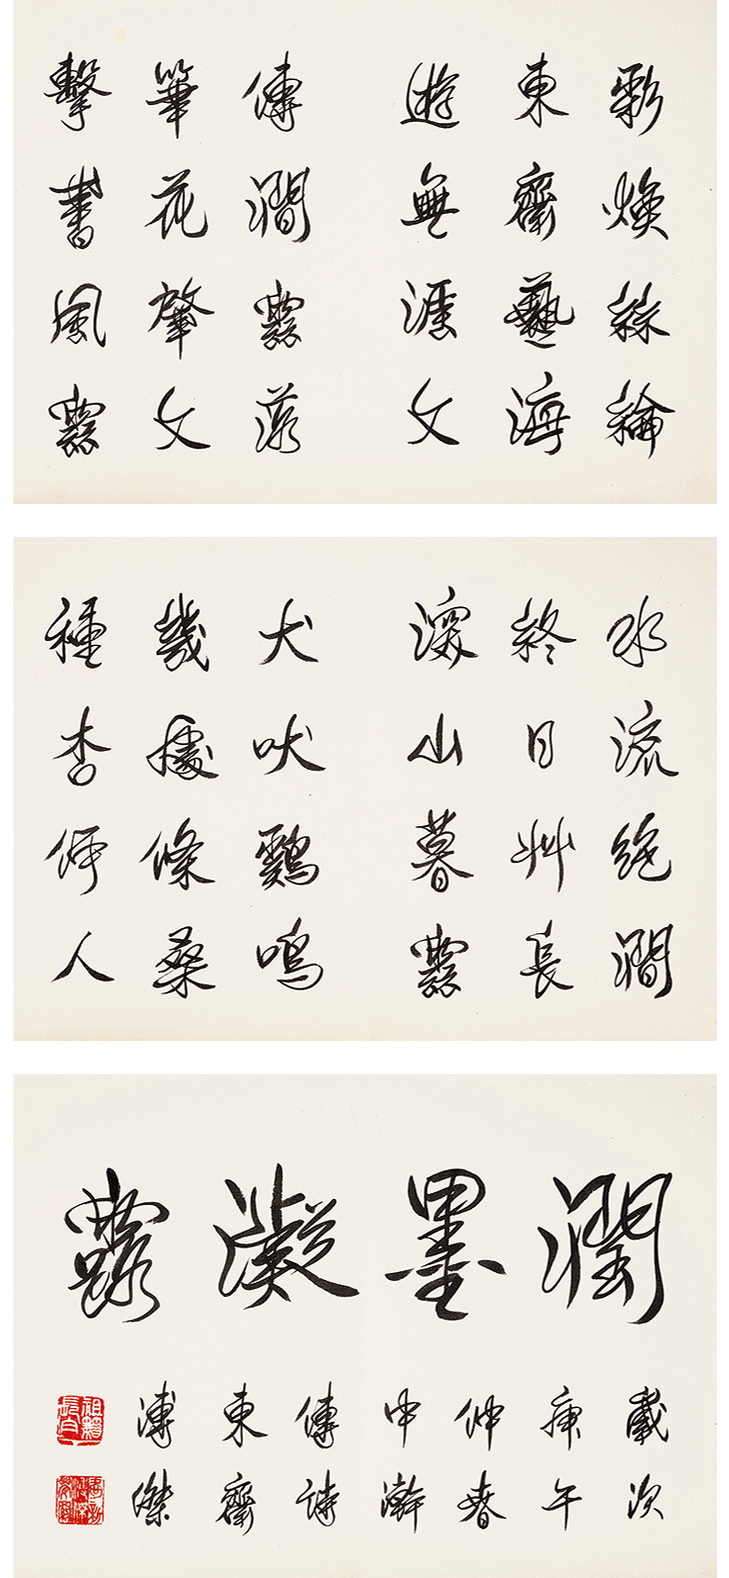 彩煥絲綸
東齋藝海
遊無涯文
傳潤雲落
筆花肇文
擊書風雲
水流絕澗
終日艸長
深山暮雲
犬吠雞鳴
幾處條桑
種杏何人
潤墨凝露
歲次
庚午
仲春
中澣
傳詩
東齋
溥傑
祖籍長白